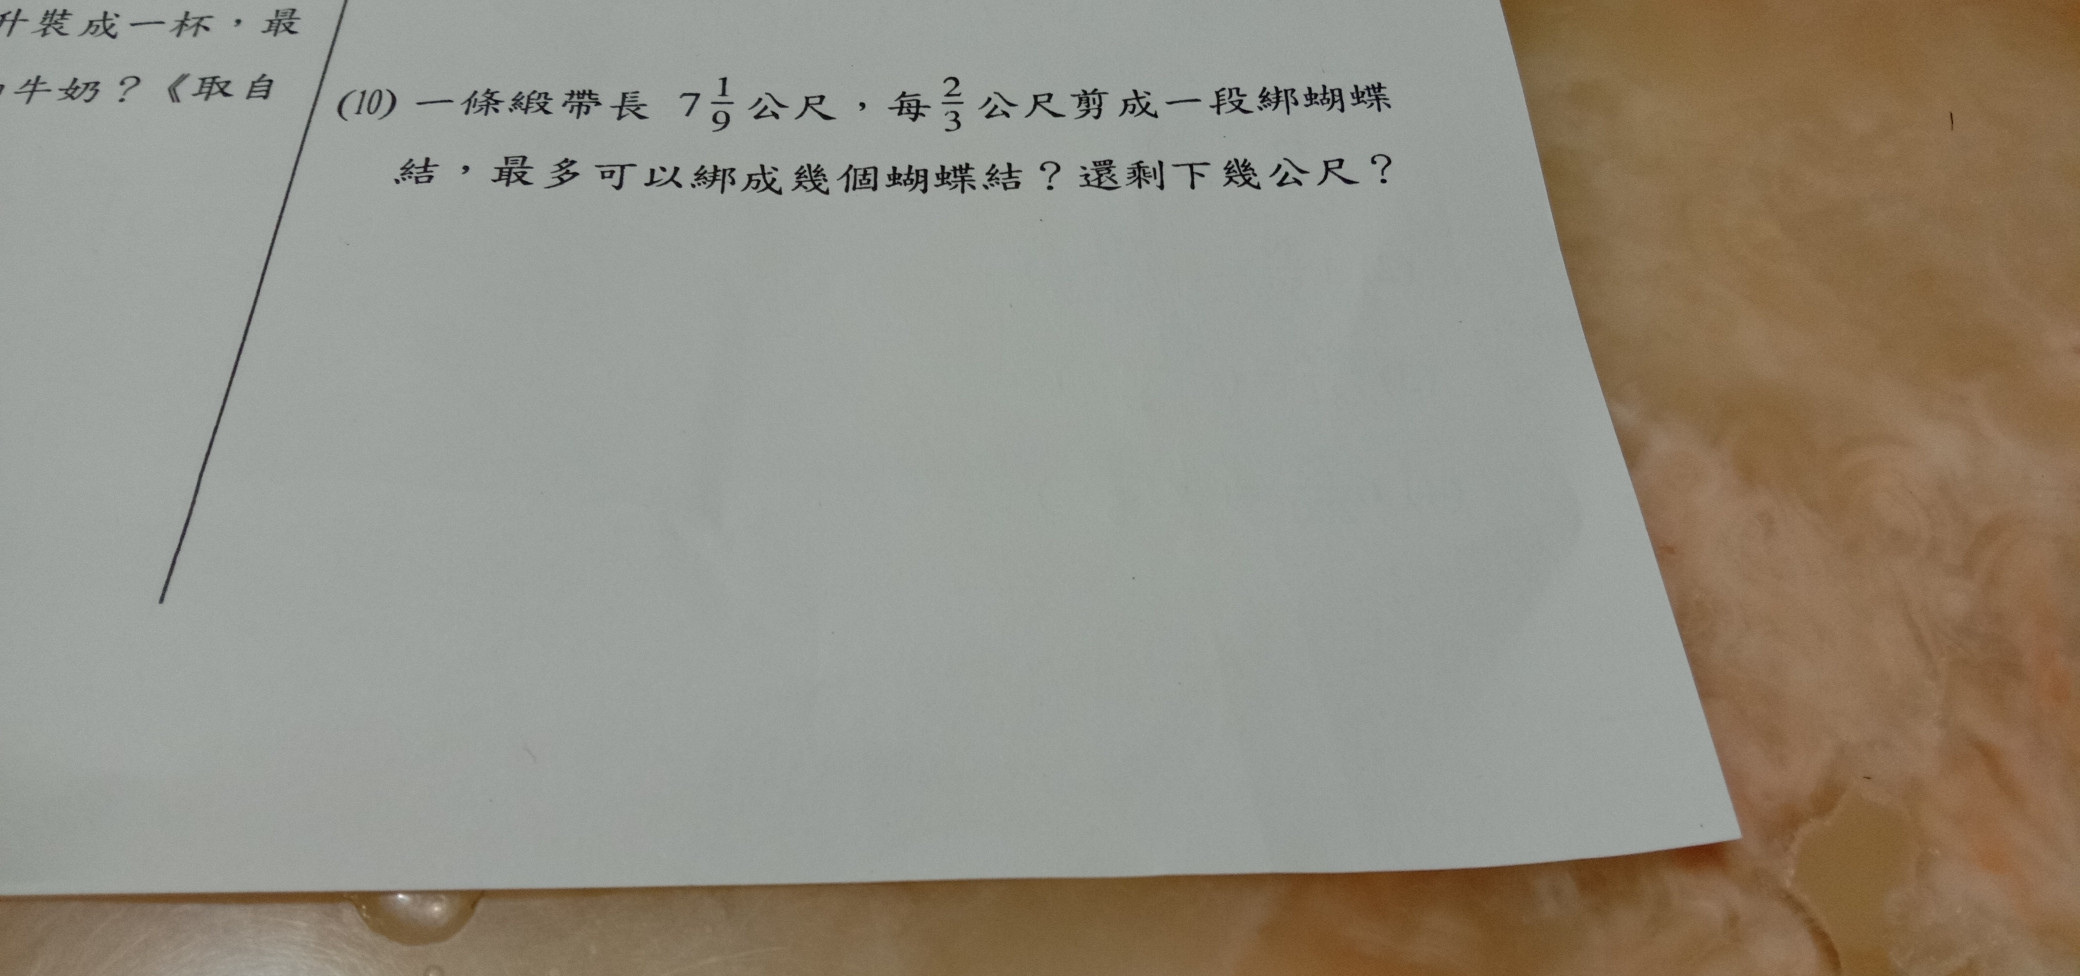 升裝成一杯，最
牛奶？《取自
(10) 一條緞帶長 7 1/9 公尺，每 2/3 公尺剪成一段綁蝴蝶
結，最多可以綁成幾個蝴蝶結？還剩下幾公尺？